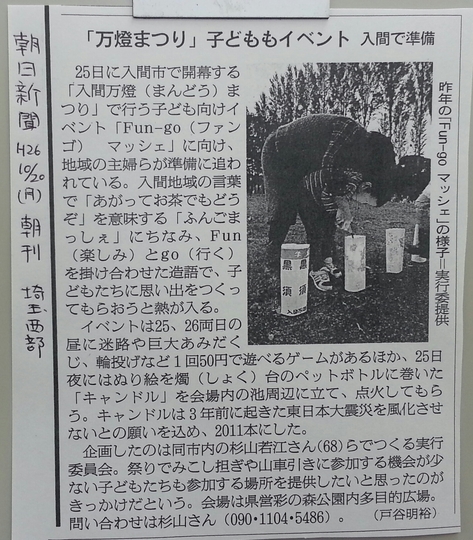 朝日新聞 H26 10/20 (月) 朝刊 埼玉西部
「万燈まつり」子どももイベント 入間で準備
25日に入間市で開幕する
「入間万燈（まんどう）ま
つり」で行う子ども向けイ
ベント「Fun-go（ファン
ゴ） マッシェ」に向け、
地域の主婦らが準備に追わ
れている。入間地域の言葉
で「あがってお茶でもどう
ぞ」を意味する「ふんごま
っしぇ」にちなみ、Fun
（楽しみ）とgo（行く）
を掛け合わせた造語で、子
どもたちに思い出をつくっ
てもらおうと熱が入る。
イベントは25、26両日の
昼に迷路や巨大あみだく
じ、輪投げなど1回50円で遊べるゲームがあるほか、25日
夜にはぬり絵を燭（しょく）台のペットボトルに巻いた
「キャンドル」を会場内の池周辺に立て、点火してもら
う。キャンドルは3年前に起きた東日本大震災を風化させ
ないとの願いを込め、2011本にした。
企画したのは同市内の杉山若江さん(68)らでつくる実行
委員会。祭りでみこし担ぎや山車引きに参加する機会が少
ない子どもたちも参加する場所を提供したいと思ったのが
きっかけだという。会場は県営彩の森公園内多目的広場。
問い合わせは杉山さん（090・1104・5486）。 （戸谷明裕）
昨年の「Fun-go マッシェ」の様子＝実行委提供
黒須
黒須